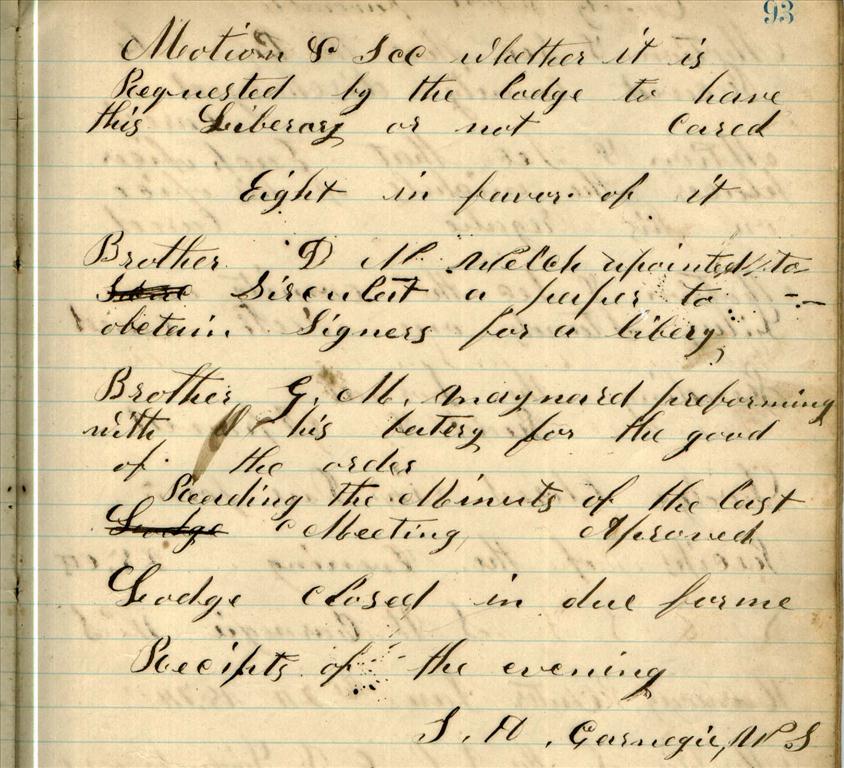 93
Motion & Sec whether it is
Requested by the lodge to have
this Liberary or not Cared
Eight in favor of it
Brother D M Welch apointed to
Sirculat a paper to
obetain Signers for a libery
Brother G. M. Maynard preforming
with his batery for the good
of the order
Reading the Minuts of the last
Lodge Meeting Aproved
Lodge Closed in due forme
Receipts of the evening
S. A. Carnegie, W S